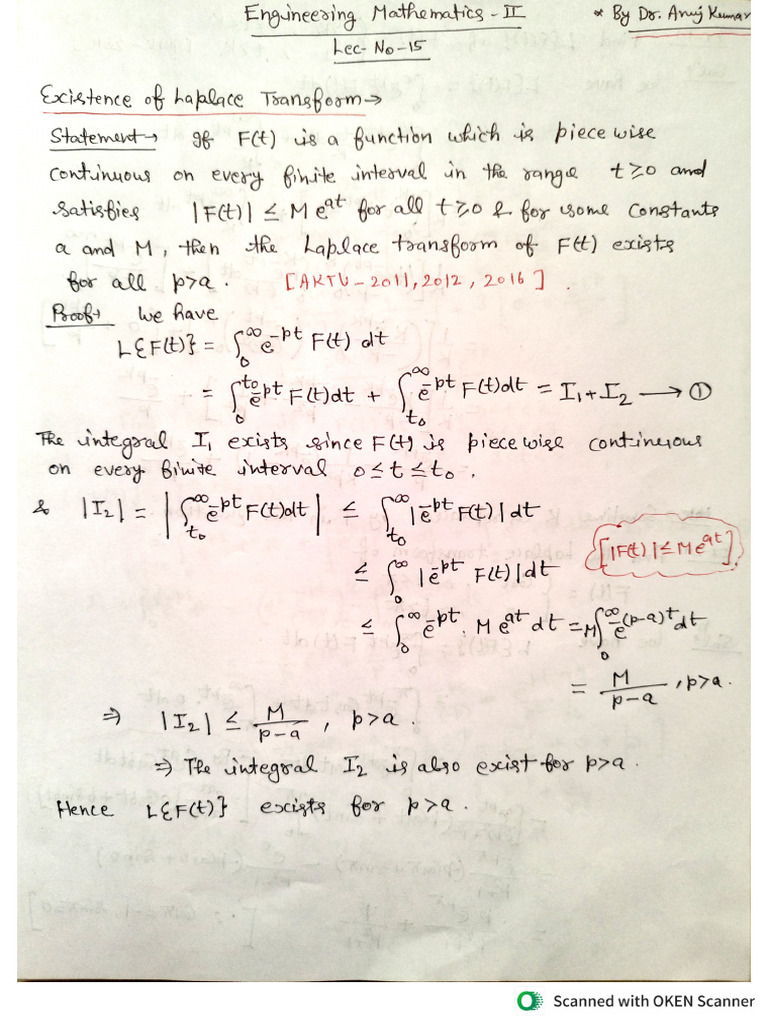 Engineering Mathematics - II * By Dr. Anuj Kumar
Lec- No-15
Existence of Laplace Transform →
Statement → If F(t) is a function which is piece wise
continuous on every finite interval in the range t ≥ 0 and
satisfies |F(t)| ≤ M e^{at} for all t ≥ 0 & for some constants
a and M, then the Laplace transform of F(t) exists
for all p>a. [AKTU - 2011, 2012, 2016].
Proof → We have
L{F(t)} = ∫_0^∞ e^{-pt} F(t) dt
= ∫_0^{t_0} e^{-pt} F(t)dt + ∫_{t_0}^∞ e^{-pt} F(t)dt = I_1 + I_2 → ①
The integral I_1 exists since F(t) is piece wise continuous
on every finite interval 0 ≤ t ≤ t_0.
& |I_2| = |∫_{t_0}^∞ e^{-pt} F(t)dt| ≤ ∫_{t_0}^∞ |e^{-pt} F(t)| dt
≤ ∫_0^∞ |e^{-pt} F(t)| dt [|F(t)| ≤ M e^{at}]
≤ ∫_0^∞ e^{-pt}. M e^{at} dt = M∫_0^∞ e^{-(p-a)t} dt
= M/(p-a), p>a.
⇒ |I_2| ≤ M/(p-a), p>a.
⇒ The integral I_2 is also exist for p>a.
Hence L{F(t)} exists for p>a.
Scanned with OKEN Scanner